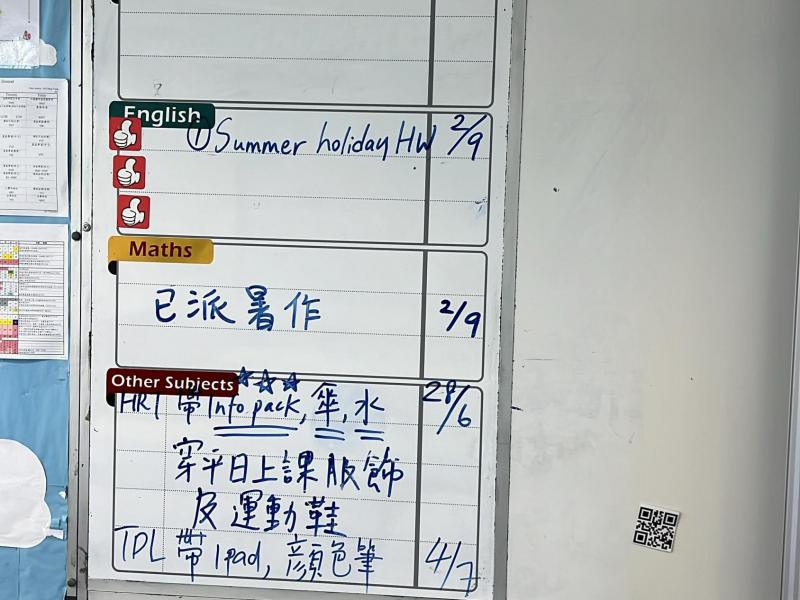 English
① Summer holiday HW 2/9
Maths
已派暑作 2/9
Other Subjects
HRT 帶 Info pack, 傘, 水 28/6
穿平日上課服飾
及運動鞋
TDL 帶 Ipad, 顏色筆 4/7